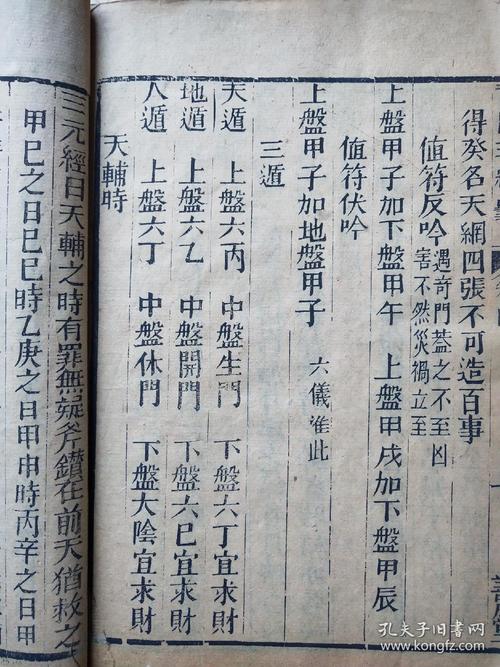 得癸名天網四張不可造百事
值符反吟 遇奇門蓋之不至凶
害不然災禍立至
上盤甲子加下盤甲午 上盤甲戌加下盤甲辰
值符伏吟
上盤甲子加地盤甲子 六儀准此
三遁
天遁 上盤六丙 中盤生門 下盤六丁宜求財
地遁 上盤六乙 中盤開門 下盤六巳宜求財
人遁 上盤六丁 中盤休門 下盤大陰宜求財
天輔時
三元經曰天輔之時有罪無疑斧鑕在前天猶救之
甲巳之日巳巳時乙庚之日甲申時丙辛之日甲
孔夫子旧书网
www.kongfz.com